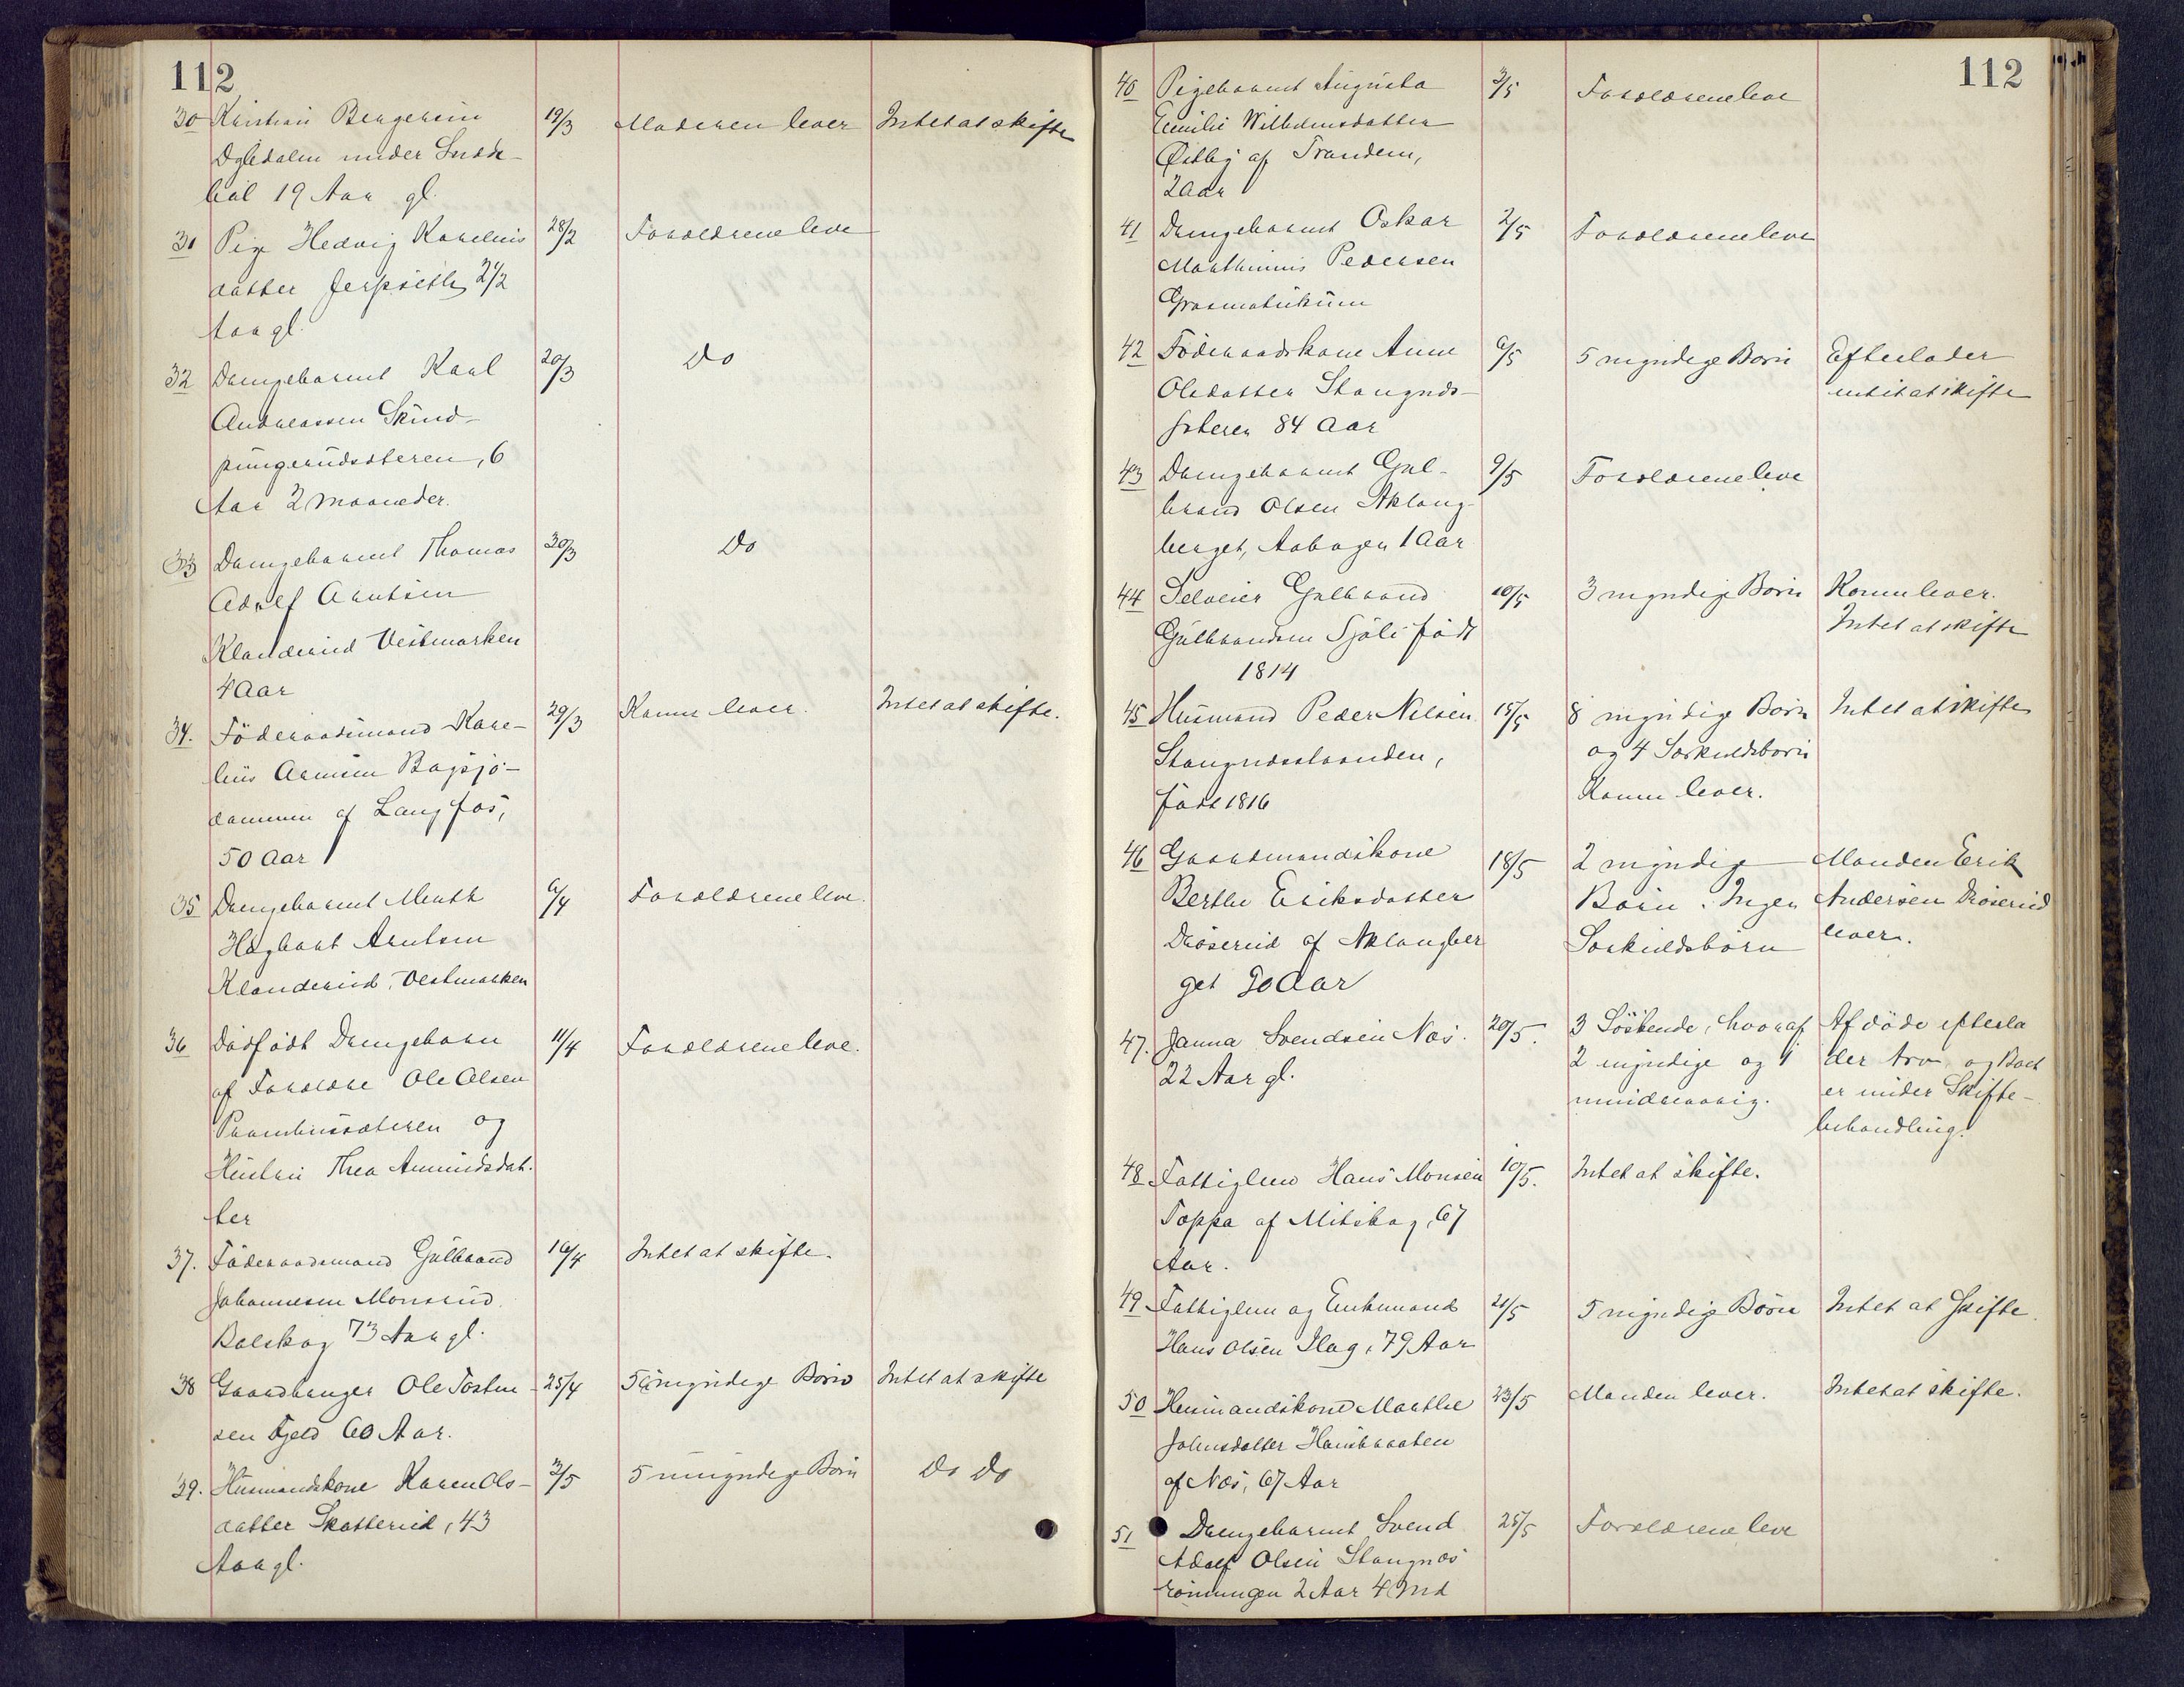 112
30 Kristian Bergersen 19/3 Moderen lever Intet at skifte
Dgledalen under Sudde-
böl 19 Aar gl.
31 Pige Hedvig Karelius 28/2 Forældrene leve
datter Jerpseth, 2 1/2
Aar gl.
32 Drengebarnet Karl 20/3 Do
Andreassen Skind-
pungerudsæteren, 6
Aar 2 Maaneder.
33 Drengebarnet Thomas 30/3 Do
Adolf Arntsen
Klanderud Vestmarken
4 Aar
34. Föderaadsmand Kare- 29/3 Konen lever. Intet at skifte.
lius Arnesen Bogsjö-
dammen af Langfos,
50 Aar
35 Drengebarnet Menth 6/4 Forældrene leve.
Hagbart Arntsen
Klanderud, Vestmarken
36 Dödfödt Drengebarn 11/4 Forældrene leve.
af Forældre Ole Olsen
Pramhussæteren og
Hustru Thea Amundsdat-
ter
37. Föderaadsmand Gulbrand 16/4 Intet at skifte.
Johannesen Monsrud,
Bolskog 73 Aar gl.
38 Gaardbruger Ole Tosten- 25/4 5 umyndige Börn Intet at skifte
sen Fjeld 60 Aar.
39. Husmandskone Karen Ols- 3/5 5 umyndige Börn Do Do
datter Skatterud, 43
Aar gl.
112
40 Pigebarnet Augusta 3/5 Forældrene leve
Emilie Wilhelmsdatter
Østby af Trandem,
2 Aar
41 Drengebarnet Oskar 2/5 Forældrene leve
Marthinius Pedersen
Grasmatükum
42 Föderaadskone Anne 6/5 5 myndige Börn Efterlader
Olsdatter Stangnds- intet at skifte
sæteren 84 Aar
43 Drengebarnet Gul- 9/5 Forældrene leve
brand Olsen Aklang-
berget, Aabogen 1 Aar
44 Selveier Gulbrand 10/5 3 myndige Börn Konen lever.
Gulbrandsen Sjöli född Intet at skifte
1814
45 Husmand Peder Nilsen 15/5 8 myndige Börn Intet at skifte
Stangnæsstranden, og 4 Særkuldsbörn
född 1816 Konen lever.
46 Gaardmandskone 18/5 2 myndige Manden Erik
Berthe Eriksdatter Börn. Ingen Andersen Dröserud
Dröserud af Aklangber Særkuldsbörn lever.
get 70 Aar
47. Janna Svendsen Næs. 20/5. 3 Söskende, hvoraf Afdöde efterla
22 Aar gl. 2 myndige og 1 der Arv og Boet
mindreaarig. er under Skifte-
behandling.
48 Fattiglem Hans Monsen 10/5. Intet at skifte.
Toppa af Mitskog, 67
Aar.
49 Fattiglem og Enkemand 21/5 5 myndige Börn Intet at Skifte.
Hans Olsen Flag, 79 Aar
50 Husmandskone Marthe 23/5 Manden lever. Intet at skifte.
Johnsdatter Hansbraaten
af Næs, 67 Aar
51 Drengebarnet Svend 25/5 Forældrene leve
Adolf Olsen Stangnæs
rönningen 2 Aar 4 Md